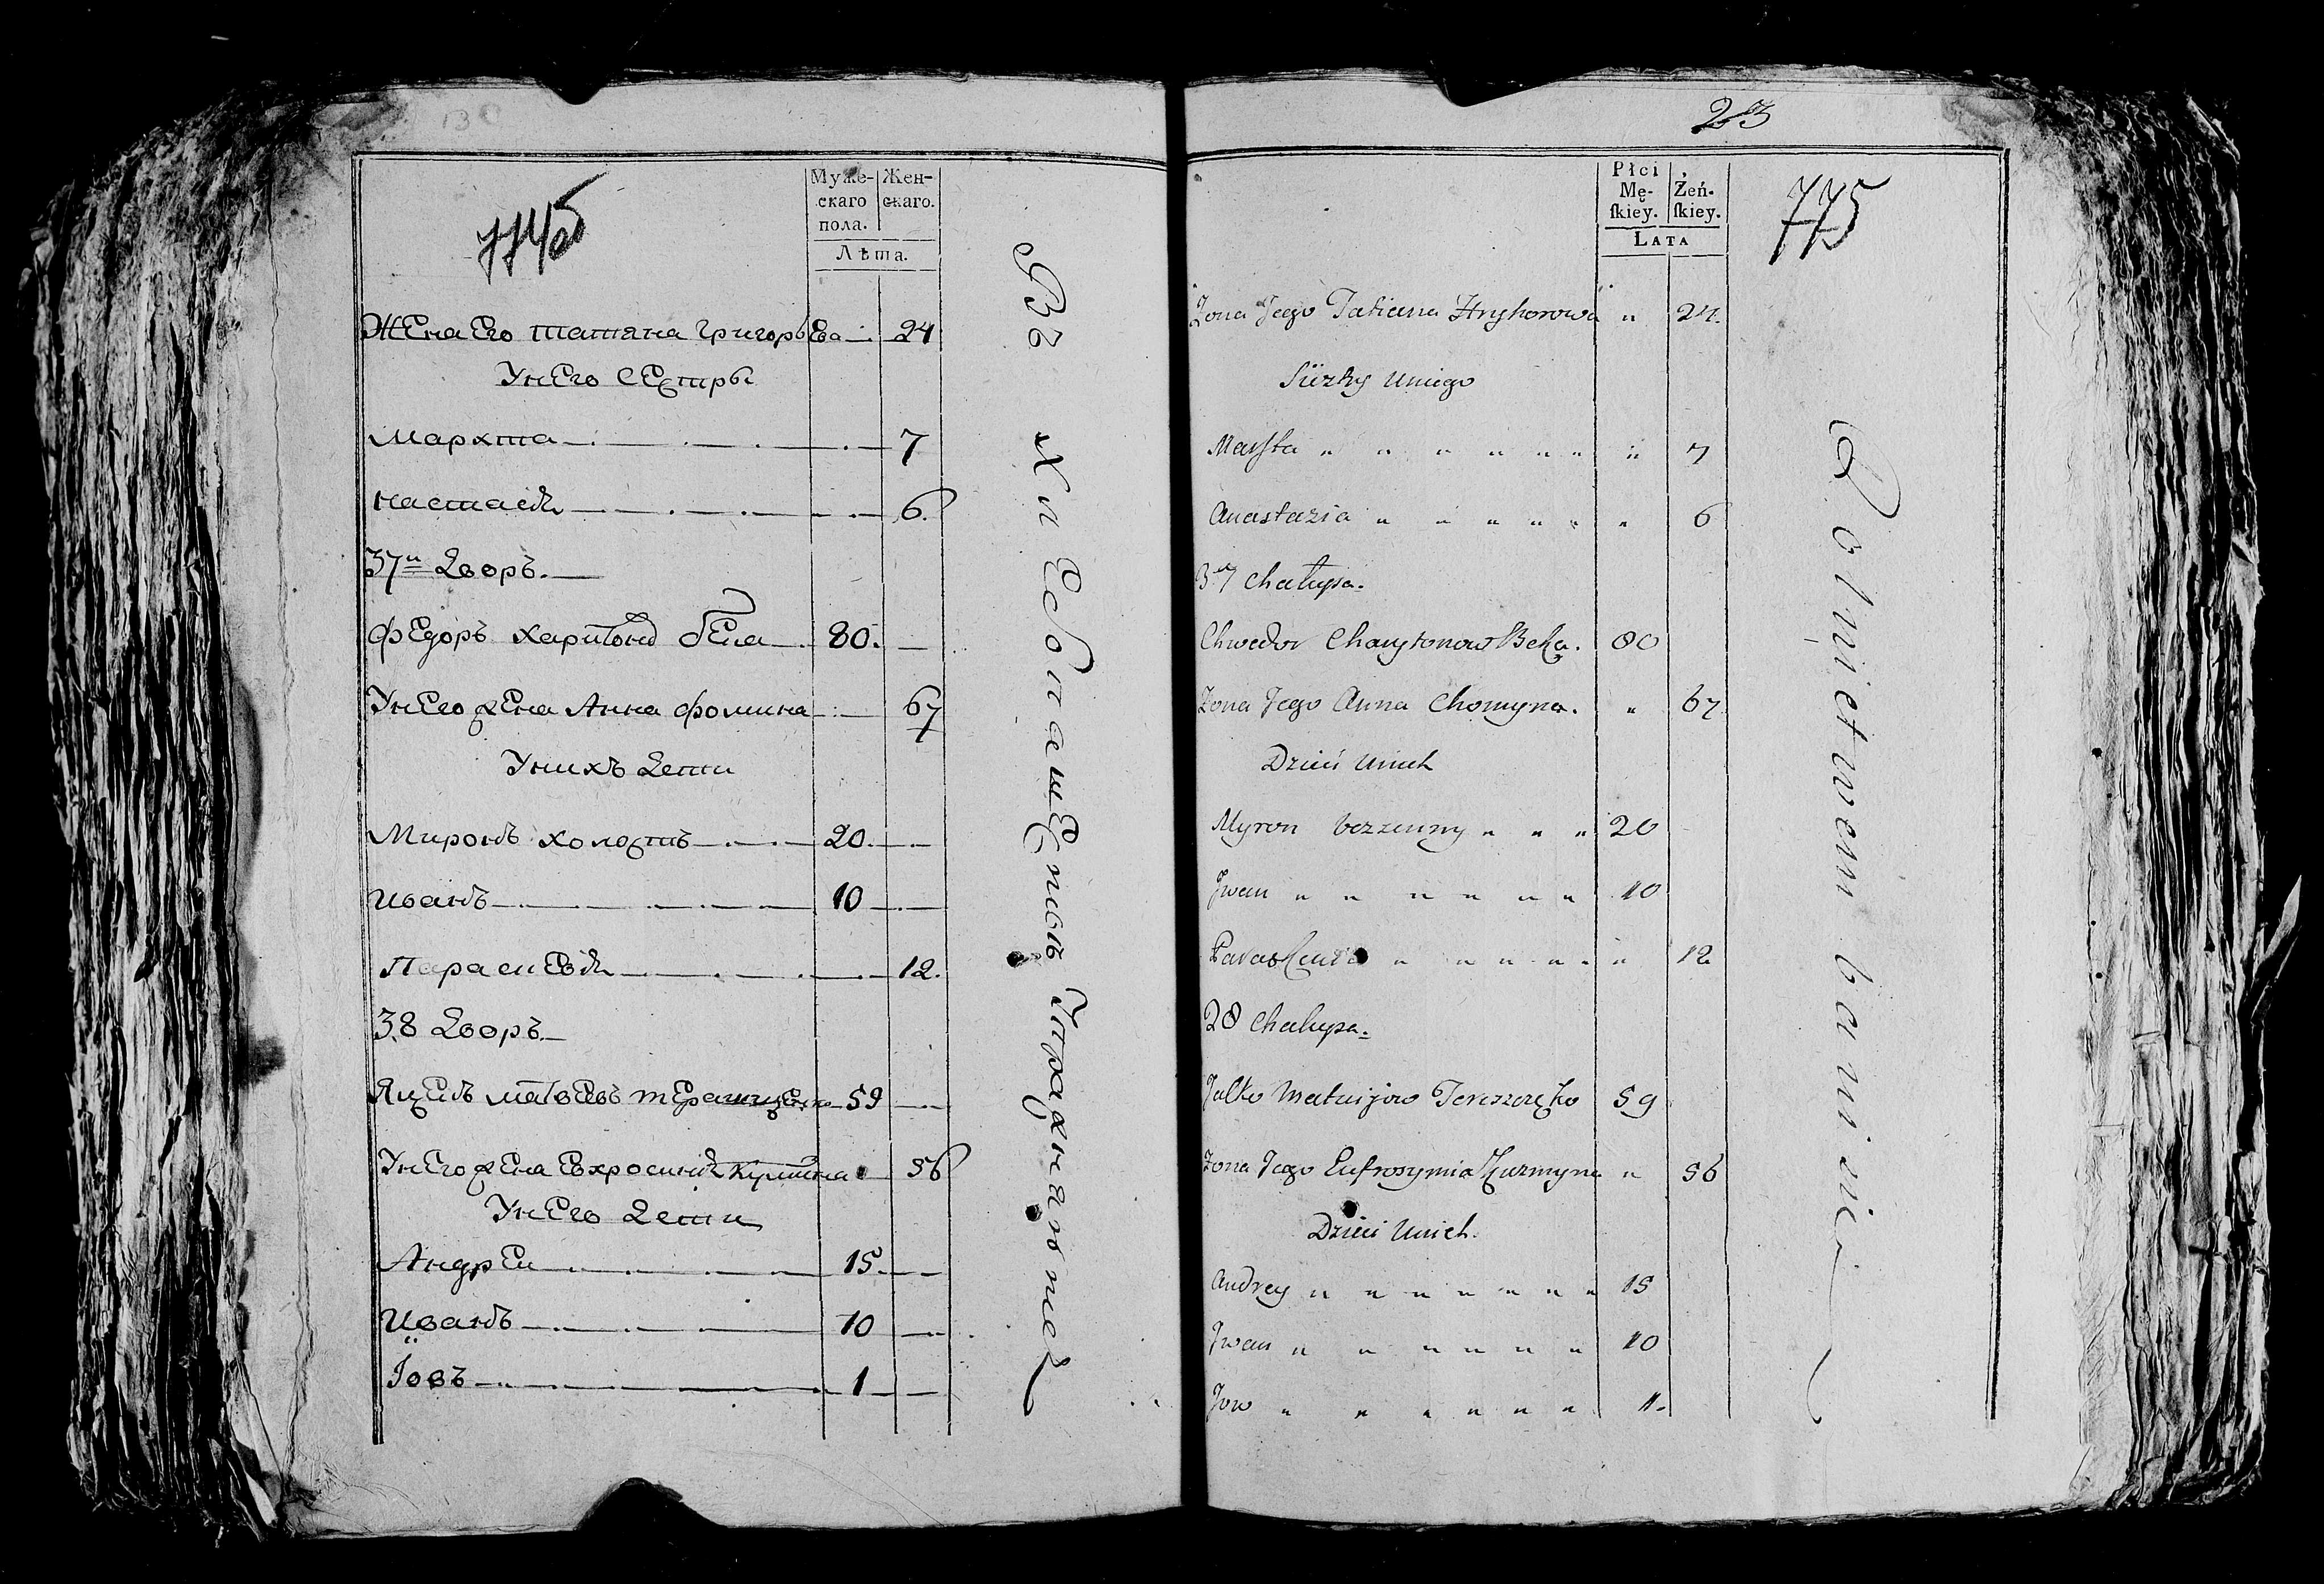 130
774об
Муже-
скаго
пола.
Жен-
скаго.
Лѣта.
Жена Его татяна григорьЕва 24
УнЕго СЕстры
Мархта 7
настасія 6.
37й Дворъ.
ФЕдоръ харитоновъ бЕла 80.
УнЕго жЕна Анна фомина 67
Унихъ Дети
Миронъ холостъ 20.
иванъ 10
ПараскЕвія 12.
38 Дворъ.
ЯцЕнъ матвЕевъ тЕращЕнко 59
УнЕго жЕна Евхросинія Кузмина 56
УнЕго Дети
АндрЕи 15.
Иванъ 10
Іовъ 1
Въ хлЕбопашЕпномъ Упражнаютея
23
775
Płci
Mę-
skiey.
Żeń-
skiey.
LATA
Zona Jego Tatiana Hryhorowa " 24.
Siiztry Uniego
Marfta " 7
Anastazia " 6
37 Chałupa.
Chwedor Charytonow Beła. 80
Zona Jego Anna Chomyna. " 67
Dzieci Unich
Myron bezzenny " 20
Jwan " 10
Paraskewia " 12
28 Chałupa.
Jacko Matwijow Tereszczęko 59
Zona Jego Eufrosymia Kuzmyna " 56
Dzieci Unich.
Andrey " 15
Jwan " 10
Jow " 1.
Rolnictwem bawi się